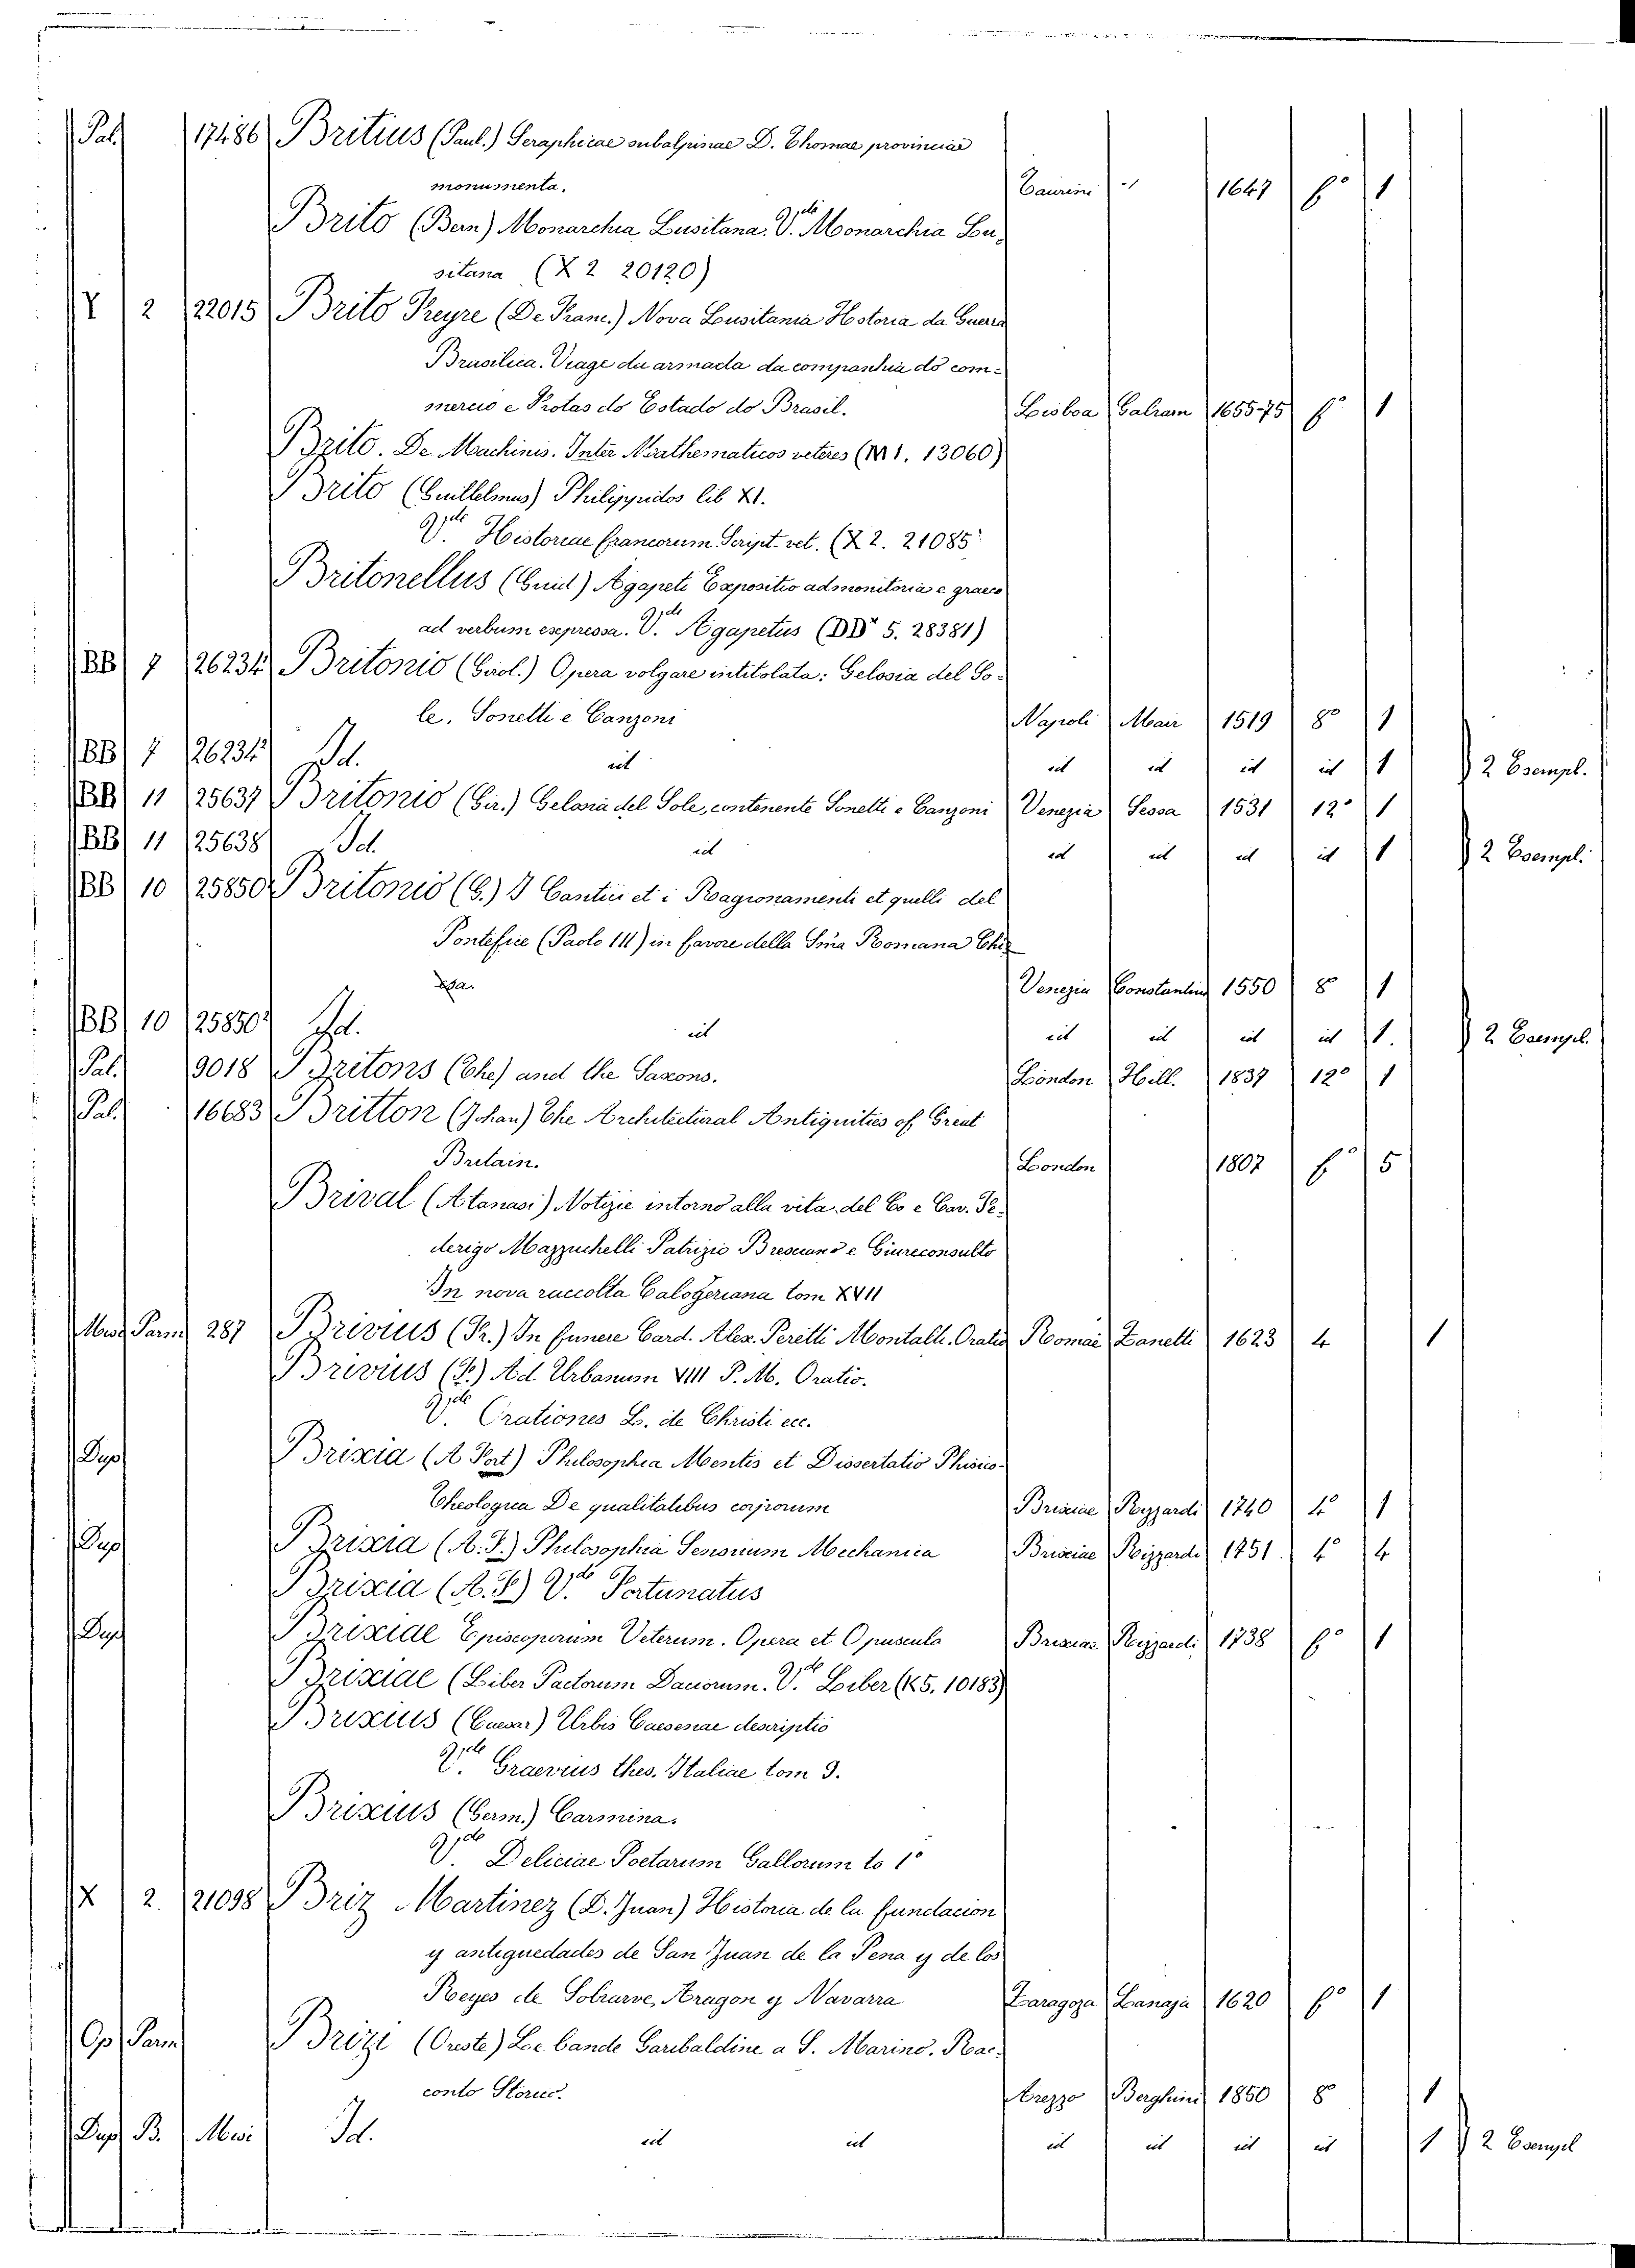 Pal. 17486 Britius (Paul.) Seraphicae subalpinae D. Thomae provinciae
monumenta. Taurini 1647 f° 1
Brito (Bern) Monarchia Lusitana. V.de Monarchia Lu-
sitana (X 2 20120)
Y 2 22015 Brito Freyre (De Franc.) Nova Lusitania Historia da Guerra
Brasilica. Viage da armada da companhia do com-
mercio e Frotas do Estado do Brasil. Lisboa Galram 1655-75 f° 1
Brito. De Machinis. Inter Mathematicos veteres (M 1. 13060)
Brito (Guillelmus) Philippidos lib XI.
V.de Historiae francorum Script. vet. (X 2. 21085
Britonellus (Guid) Agapeti Expositio admonitoria e graeco
ad verbum expressa. V.de Agapetus (DD 5. 28381)
BB 7 26234 Britonio (Girol.) Opera volgare intitolata: Gelosia del So-
le. Sonetti e Canzoni Napoli Mair 1519 8° 1
BB 7 26234² Id. id id id id id 1 2 Esempl.
BB 11 25637 Britonio (Gir.) Gelosia del Sole, contenente Sonetti e Canzoni Venezia Sessa 1531 12° 1
BB 11 25638 Id. id id id id id 1 2 Esempl.
BB 10 25850 Britonio (G.) I Cantici et i Ragionamenti et quelli del
Pontefice (Paolo III) in favore della Sma Romana Chie-
sa. Venezia Constantini 1550 8° 1
BB 10 25850² Id. id id id id id 1. 2 Esempl.
Pal. 9018 Britons (The) and the Saxons. London Hill. 1837 12° 1
Pal. 16683 Britton (Johan) The Architectural Antiquities of Great
Britain. London 1807 f° 5
Brival (Atanasi) Notizie intorno alla vita del Co e Cav. Fe-
derigo Mazzuchelli Patrizio Bresciano e Giureconsulto
In nova raccolta Calogeriana tom XVII
Misc Parm 287 Brivius (Fr.) In funere Card. Alex. Peretti Montalt. Oratio Romae Zanetti 1623 4 1
Brivius (F.) Ad Urbanum VIII P. M. Oratio.
V.de Orationes L. de Christi ecc.
Dup Brixia (A Fort) Philosophia Mentis et Dissertatio Phisico-
Theologica De qualitatibus corporum Brixiae Rizzardi 1740 4° 1
Dup Brixia (A. F.) Philosophia Sensuum Mechanica Brixiae Rizzardi 1751. 4° 4
Brixia (A. F.) V.de Fortunatus
Dup Brixiae Episcoporum Veterum. Opera et Opuscula Brixiae Rizzardi 1738 f° 1
Brixiae (Liber Pactorum Daciorum. V.de Liber (K 5. 10183)
Brixius (Caesar) Urbis Caesenae descriptio
V.de Graevius thes. Italiae tom 9.
Brixius (Germ.) Carmina.
V.de Deliciae Poetarum Gallorum to 1°
X 2. 21098 Briz Martinez (D. Juan) Historia de la fundacion
y antiguedades de San Juan de la Pena y de los
Reyes de Sobrarve, Aragon y Navarra Zaragoza Lanaja 1620 f° 1
Op Parm Brizi (Oreste) Le bande Garibaldine a S. Marino. Rac-
conto Storico. Arezzo Berghini 1850 8° 1
Dup B. Misc Id. id id id id id id 1 2 Esempl